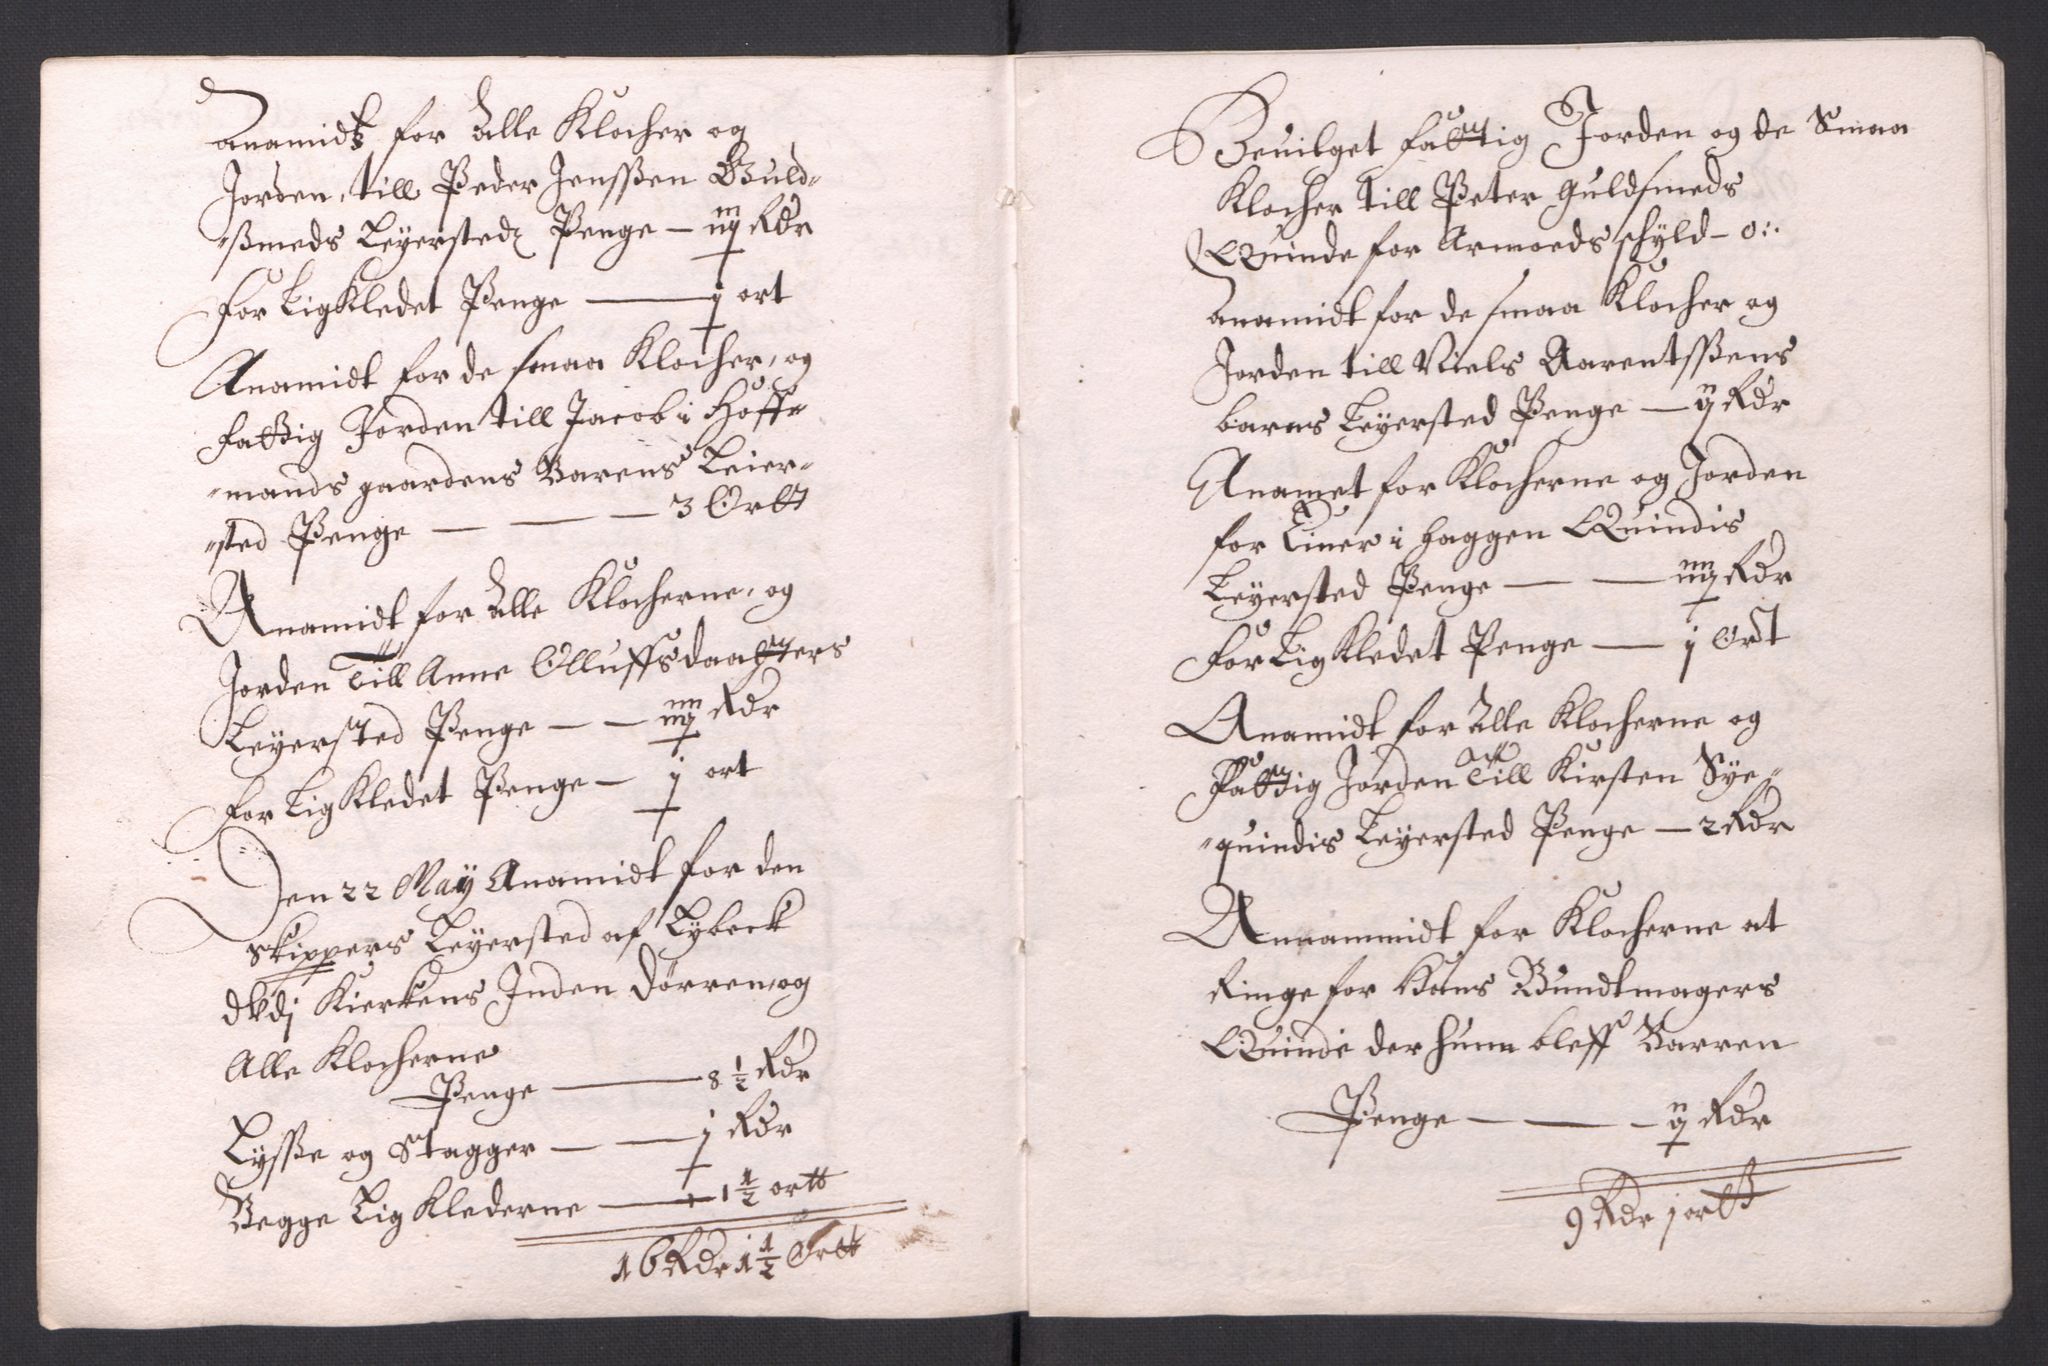 Anamidt for Alle Klocher og
Jorden, till Peder Jenssen Guld-
"ssmeds Leyersted Penge — iij Rdr
For Ligkledet Penge — j ort
Anamidt for de smaa Klocher, og
fattig Jorden till Jacob i Hoff-
"mands gaardens Barens Leier-
"sted Penge — — — 3 Ortt
Anamidt for Alle Klocherne, og
Jorden Till Anne Olluffsdaatters
Leyersted Penge — — iiij Rdr
For Lig Kledet Penge — j ort
Den 22 May Anamidt for den
Skippers Leyersted af Lybeck
Kierkens Inden Dörren, og
Alle Klocherne
Penge — 8 1/2 Rdr
Lysse og Stagger — — j Rdr
Begge Lig Klederne — 1 1/2 ortt
16 Rdr 1 1/2 Ortt
Beuilget fattig Jorden og de Smaa
Klocher till Peter Guldsmeds
Quinde for Armoeds schyld — 0:.
Anamidt for de smaa Klocher og
Jorden till Niels Aarentssens
barns Leyersted Penge — ij Rdr
Anamet for Klocherne og Jorden
for Einer i Haggen Quindis
Leyersted Penge — — iiij Rdr
For Lig Kledet Penge — j Ort
Anamidt for Alle Klocherne og
Fattig Jorden Till Kirsten Sye-
"quindis Leyersted Penge — 2 Rdr
Annammidt for Klocherne at
Ringe for Hans Bundtmagers
Quinde der hunn bleff Barren
Penge — — — ij Rdr
9 Rdr j ortt